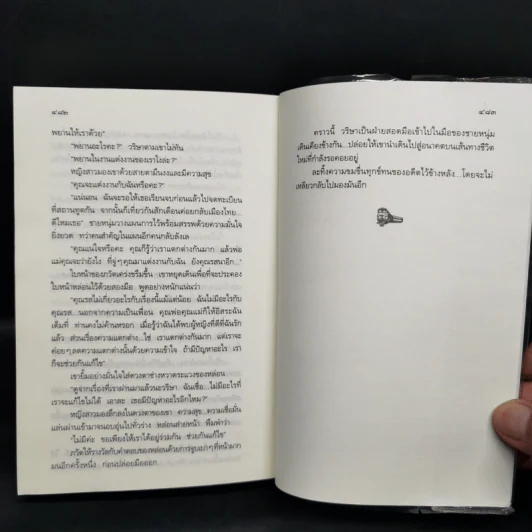 ๔๘๒
พยานให้เราด้วย"
"พยานอะไรคะ?" วริษาตามเขาไม่ทัน
"พยานในงานแต่งงานของเราไงล่ะ?"
หญิงสาวมองเขาด้วยสายตามึนงงและมีความสุข
"คุณจะแต่งงานกับฉันหรือคะ?"
"แน่นอน ฉันจะรอให้เธอเรียนจบก่อนแล้วไปจดทะเบียน
ที่สถานทูตกัน จากนั้นก็เที่ยวกันสักเดือนค่อยกลับเมืองไทย...
ดีไหมเธอ" ชายหนุ่มวางแผนการไว้พร้อมสรรพด้วยความมั่นใจ
ยิ่งยวด ทว่าคนสำคัญในแผนอีกคนกลับลังเล
"คุณแน่ใจหรือคะ คุณก็รู้ว่าเราแตกต่างกันมาก แล้วพ่อ
แม่คุณจะว่ายังไง ที่จู่ๆคุณมาแต่งงานกับฉัน ยังคุณรสนาอีก..."
ใบหน้าของภวัตเคร่งขรึมขึ้น เขาหยุดเดินเพื่อที่จะประคอง
ใบหน้าหล่อนไว้ด้วยสองมือ พูดอย่างหนักแน่นว่า
"คุณรสไม่เกี่ยวอะไรกับเรื่องนี้แม้แต่น้อย ฉันไม่มีอะไรกับ
คุณรส...นอกจากความเป็นเพื่อน คุณพ่อคุณแม่ก็ให้อิสระฉัน
เต็มที่ ท่านคงไม่ค้านหรอก เมื่อรู้ว่าฉันได้พบผู้หญิงที่ดีที่ฉันรัก
แล้ว ส่วนเรื่องความแตกต่าง...ใช่ เราแตกต่างกันมาก แต่เราจะ
ค่อยๆลดความแตกต่างนั้นด้วยความเข้าใจ ถ้ามีปัญหาอะไร เรา
ก็จะช่วยกันแก้ไข"
เขายิ้มอย่างมั่นใจใส่ดวงตาช่างหวาดระแวงของหล่อน
"ดูจากเรื่องที่เราผ่านมาแล้วนะวริษา ฉันเชื่อ...ไม่มีอะไรที่
เราจะแก้ไขไม่ได้ เอาละ เธอมีปัญหาอะไรอีกไหม?"
หญิงสาวมองลึกลงในดวงตาของเขา ความสุข...ความเชื่อมั่น
แล่นผ่านเข้ามาจนอบอุ่นไปทั่วร่าง หล่อนส่ายหน้า พึมพำว่า
"ไม่มีค่ะ ขอเพียงให้เราได้อยู่ร่วมกัน ช่วยกันแก้ไข"
ภวัตให้รางวัลกับคำตอบของหล่อนด้วยการจูบเบาๆที่หน้าผาก
มนอีกครั้งหนึ่ง ก่อนปล่อยมือออก
๔๘๓
คราวนี้ วริษาเป็นฝ่ายสอดมือเข้าไปในมือของชายหนุ่ม
เดินเคียงข้างกัน...ปล่อยให้เขานำเดินไปสู่อนาคตบนเส้นทางชีวิต
ใหม่ที่กำลังรอคอยอยู่
ละทิ้งความขมขื่นทุกข์ทนของอดีตไว้ข้างหลัง...โดยจะไม่
เหลียวกลับไปมองมันอีก